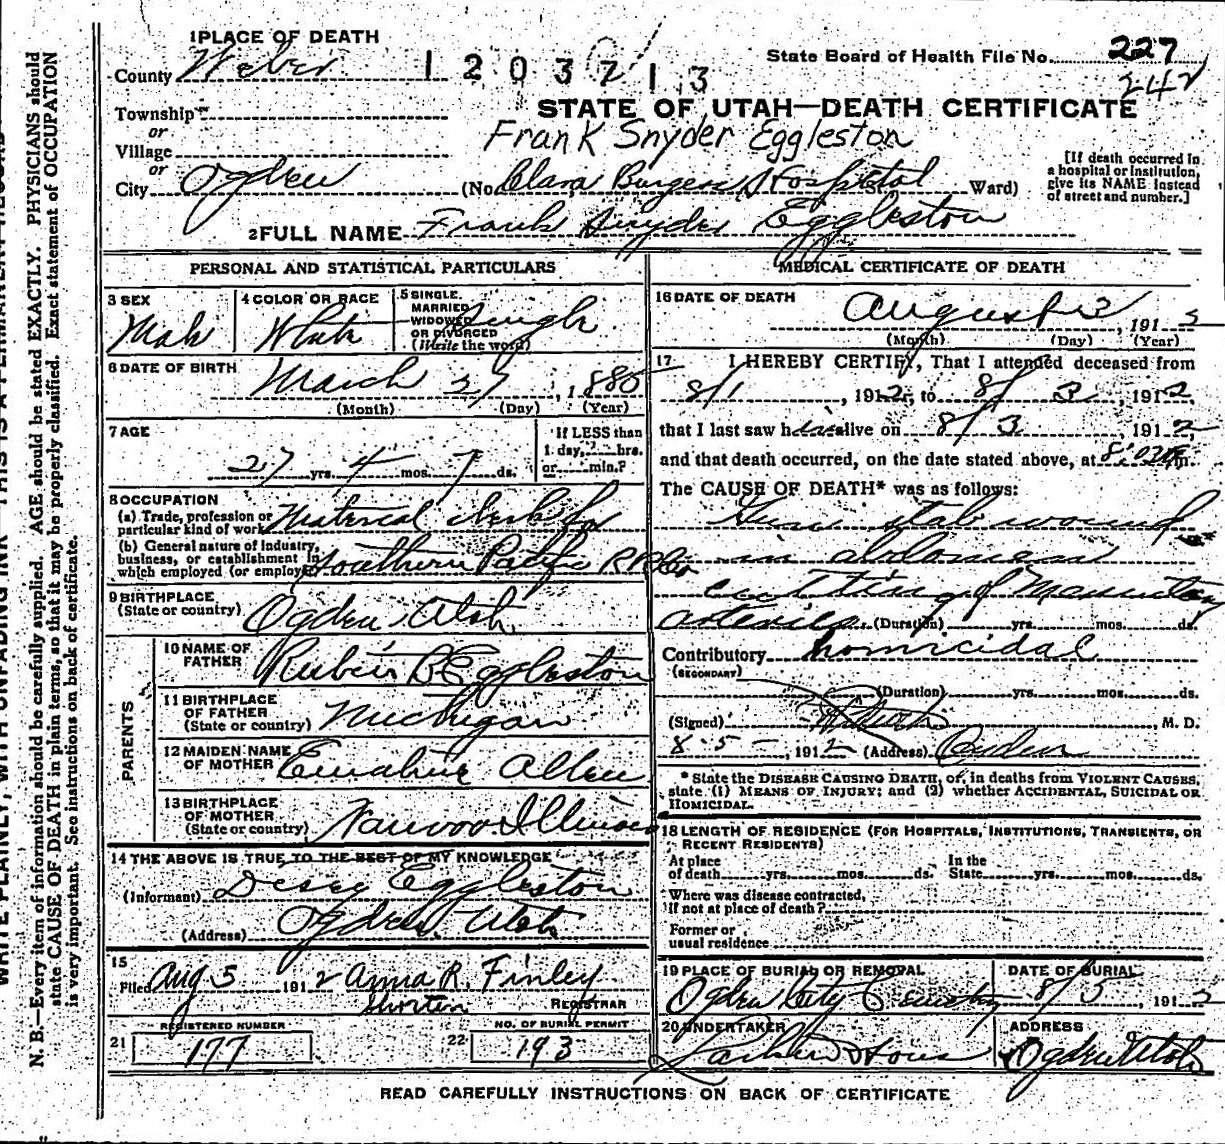 1 PLACE OF DEATH
County Weber
1203713
State Board of Health File No. 227
242
STATE OF UTAH—DEATH CERTIFICATE
Township
or
Village
or
City Ogden
Frank Snyder Eggleston
(No. Hospital Ward)
[If death occurred in
a hospital or institution,
give its NAME instead
of street and number.]
2 FULL NAME Frank Snyder Eggleston
PERSONAL AND STATISTICAL PARTICULARS
3 SEX
Male
4 COLOR OR RACE
White
5 SINGLE,
MARRIED
WIDOWED
OR DIVORCED
(Write the word)
Single
6 DATE OF BIRTH
March 27, 1885
(Month) (Day) (Year)
7 AGE
27 yrs. 4 mos. 7 ds.
If LESS than
1 day, hrs.
or min.?
8 OCCUPATION
(a) Trade, profession or
particular kind of work Material clerk for
(b) General nature of industry,
business, or establishment in
which employed (or employer) Southern Pacific RR Co
9 BIRTHPLACE
(State or country) Ogden Utah
PARENTS
10 NAME OF
FATHER Rubin B Eggleston
11 BIRTHPLACE
OF FATHER
(State or country) Michigan
12 MAIDEN NAME
OF MOTHER Emaline Allen
13 BIRTHPLACE
OF MOTHER
(State or country) Nauvoo Illinois
14 THE ABOVE IS TRUE TO THE BEST OF MY KNOWLEDGE
(Informant) Eggleston
(Address) Ogden Utah
15
Filed Aug 5 1912 Anna R. Finley
REGISTRAR
REGISTERED NUMBER
21 177
NO. OF BURIAL PERMIT
22 193
MEDICAL CERTIFICATE OF DEATH
16 DATE OF DEATH
August 3, 1912
(Month) (Day) (Year)
17 I HEREBY CERTIFY, That I attended deceased from
8/1, 1912, to 8/3, 1912,
that I last saw him alive on 8/3 1912,
and that death occurred, on the date stated above, at m.
The CAUSE OF DEATH* was as follows:
stab wound
in abdomen
cutting of
arteries (Duration) yrs. mos. ds.
Contributory homicidal
(SECONDARY)
(Duration) yrs. mos. ds.
(Signed) , M. D.
8-5-, 1912 (Address) Ogden
* State the DISEASE CAUSING DEATH, or, in deaths from VIOLENT CAUSES,
state (1) MEANS OF INJURY; and (2) whether ACCIDENTAL, SUICIDAL OR
HOMICIDAL.
18 LENGTH OF RESIDENCE (FOR HOSPITALS, INSTITUTIONS, TRANSIENTS, OR
RECENT RESIDENTS)
At place
of death yrs. mos. ds.
In the
State yrs. mos. ds.
Where was disease contracted,
if not at place of death?
Former or
usual residence
19 PLACE OF BURIAL OR REMOVAL
Ogden City Cemetery
DATE OF BURIAL
8/5, 1912
20 UNDERTAKER
Larkin & Sons
ADDRESS
Ogden Utah
READ CAREFULLY INSTRUCTIONS ON BACK OF CERTIFICATE
N. B.—Every item of information should be carefully supplied. AGE should be stated EXACTLY. PHYSICIANS should
state CAUSE OF DEATH in plain terms, so that it may be properly classified. Exact statement of OCCUPATION
is very important. See instructions on back of certificate.